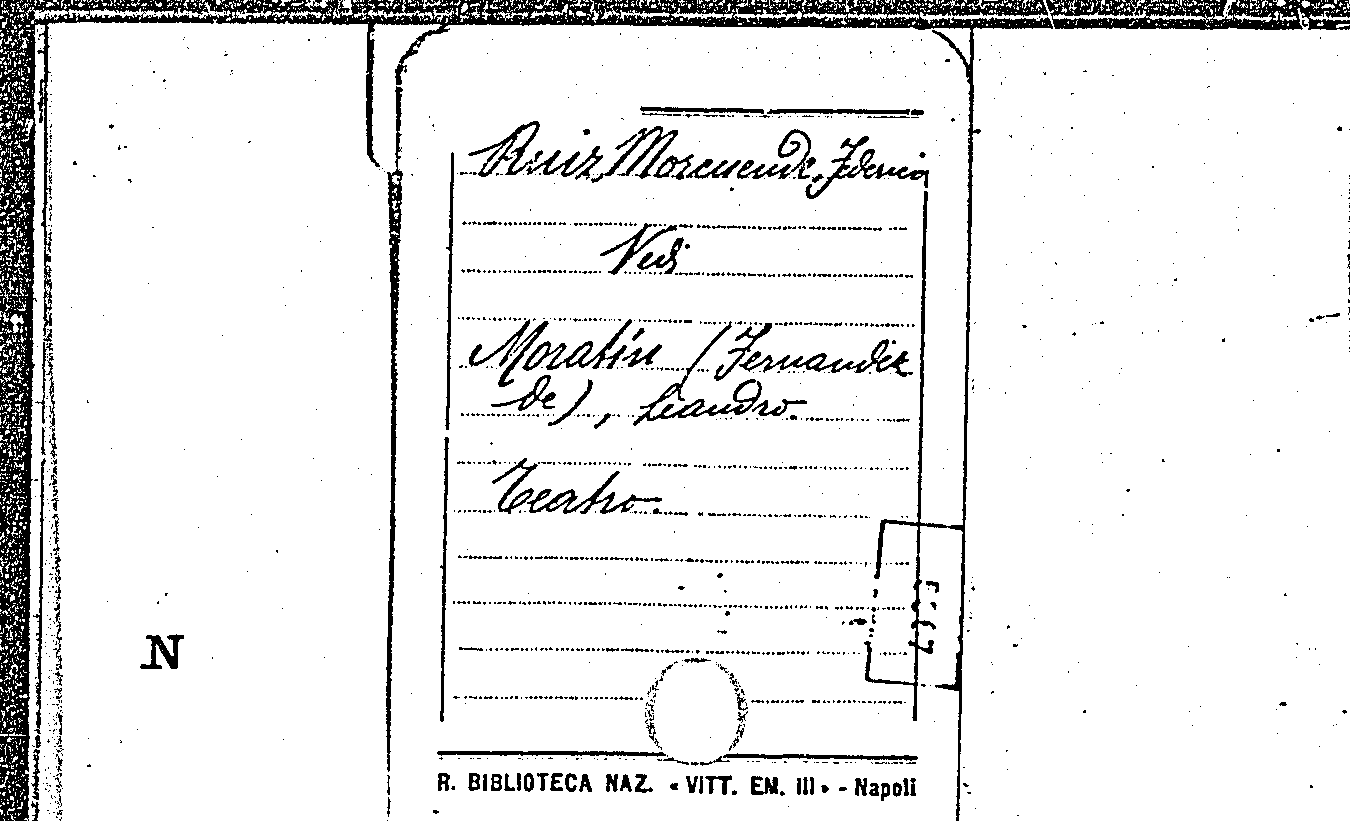 Ruiz Morcuende, Federico
Vedi
Moratin (Fernandez
de), Leandro.
Teatro.
N
R. BIBLIOTECA NAZ. « VITT. EM. III » - Napoli